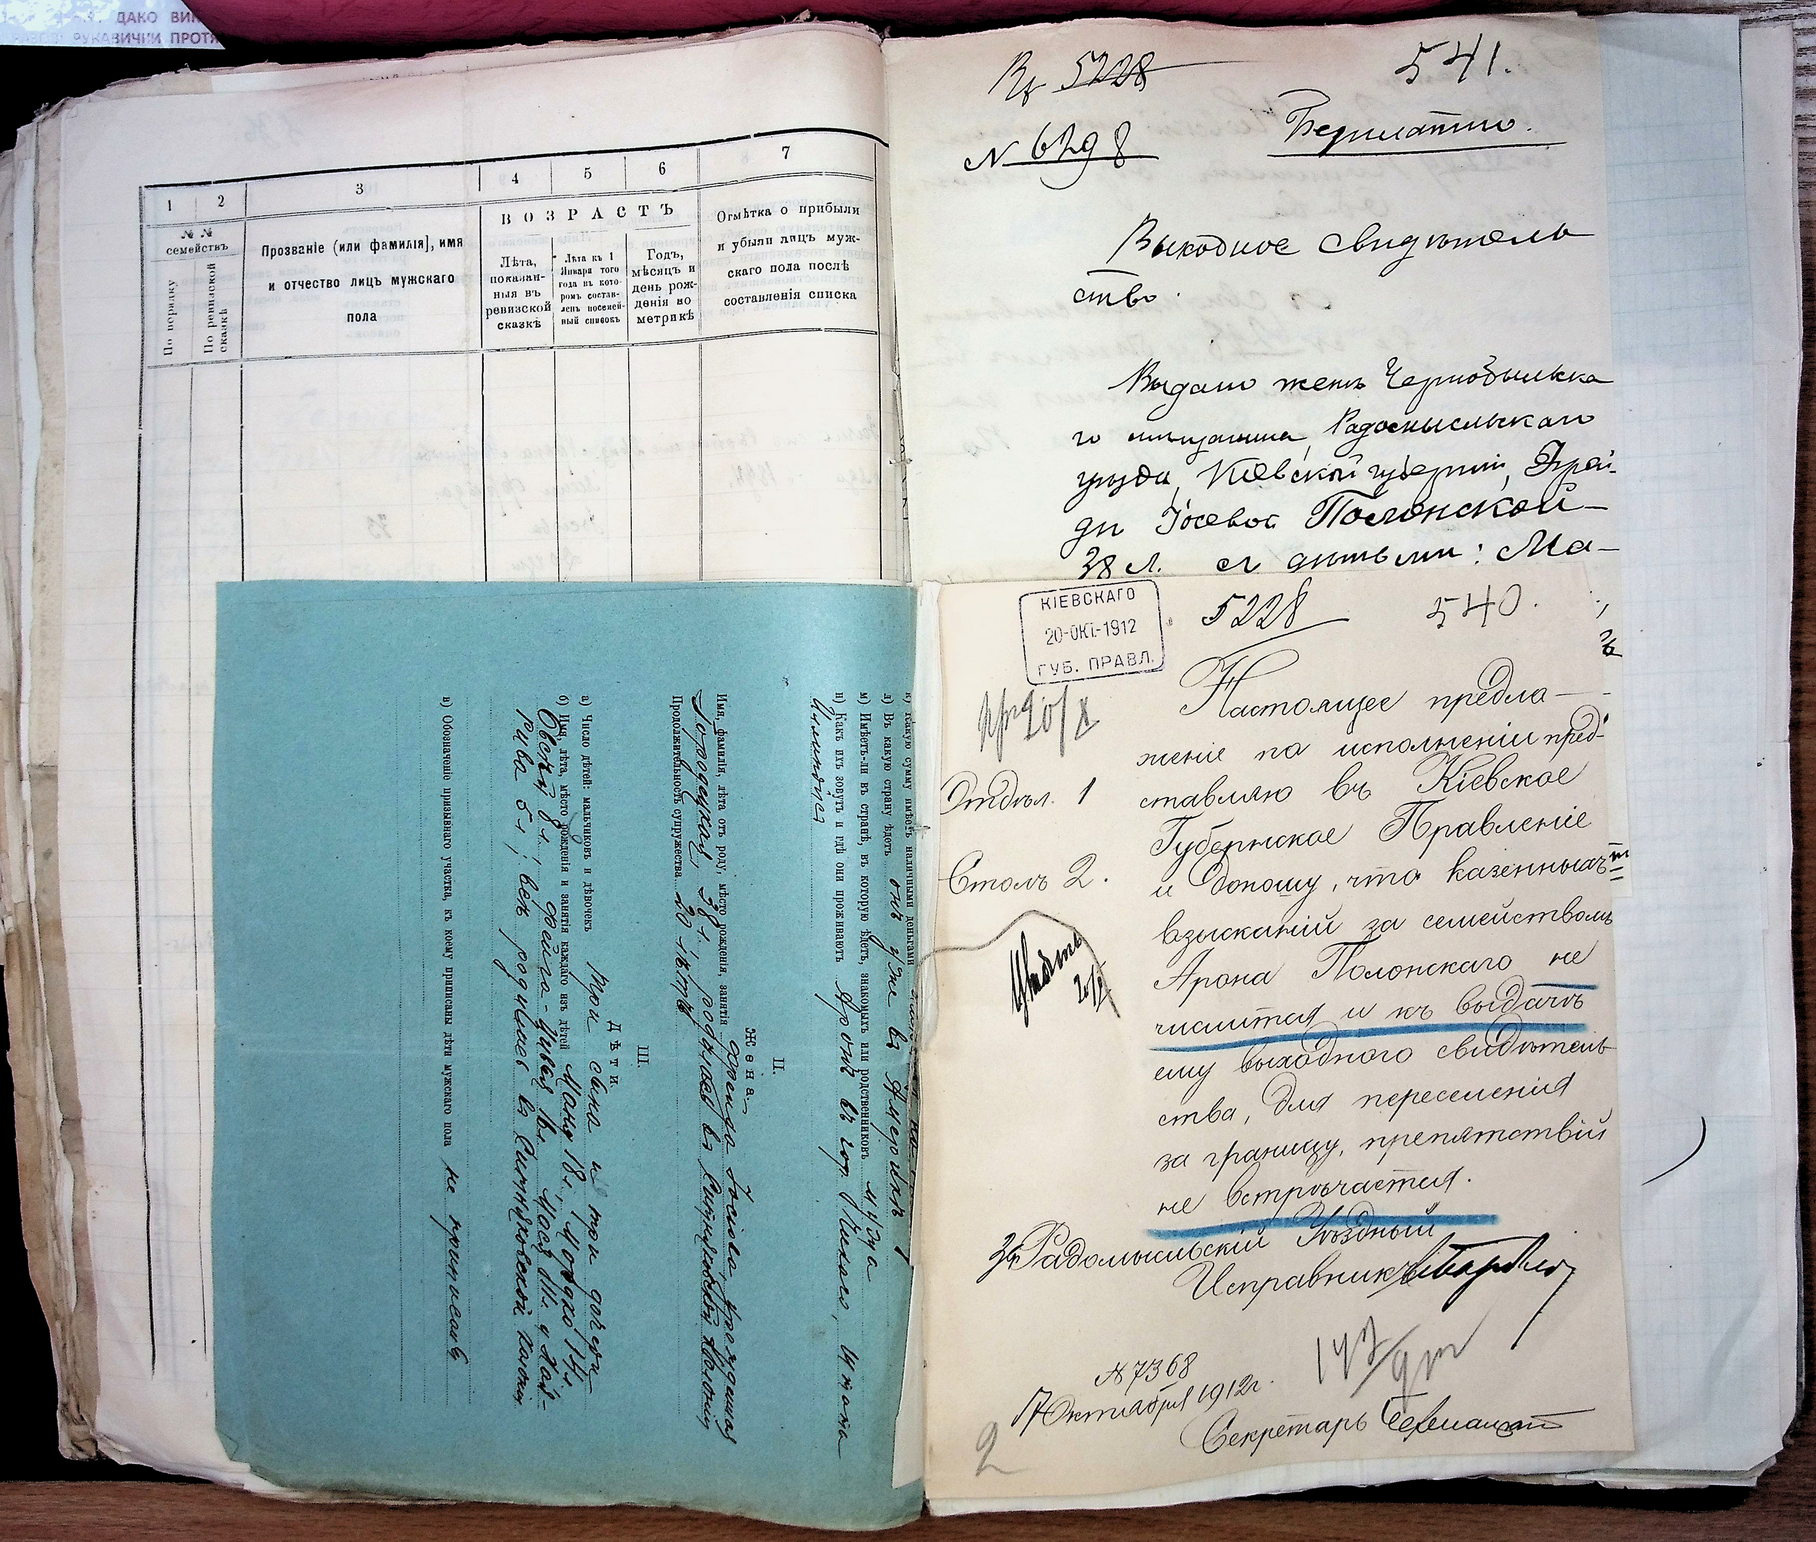 ДАКО
РУКАВИЧКИ
1
2
3
4
5
6
7
№ №
семействъ
По порядку
По ревизской сказкѣ
Прозваніе (или фамилія), имя
и отчество лицъ мужскаго
пола
ВОЗРАСТЪ
Лѣта,
показан-
ныя въ
ревизской
сказкѣ
Лѣта къ 1
Января того
года въ кото-
ромъ состав-
ленъ посемей-
ный списокъ
Годъ,
мѣсяцъ и
день рож-
денія по
метрикѣ
Отмѣтка о прибыли
и убыли лицъ муж-
скаго пола послѣ
составленія списка
5228
541.
№ 6298
Безплатно.
Выходное свидѣтель
ство.
Выдано женѣ Чернобыльска
го мѣщанина, Радомысльскаго
уѣзда, Кіевской губерніи, Фрей-
ди Іосевой Полонской
38 л. съ дѣтьми: Ма-
КІЕВСКАГО
20-ОКТ-1912
ГУБ. ПРАВЛ.
5228
540.
Настоящее предла-
женіе по исполненіи пред-
Отдѣл. 1
ставляю въ Кіевское
Губернское Правленіе
Столъ 2.
и доношу, что казенныхъ
взысканій за семействомъ
Арона Полонскаго не
числится и къ выдачѣ
ему выходного свидѣтель
ства, для переселенія
за границу, препятствій
не встрѣчается.
Радомысльскій Уѣздный
Исправникъ
№ 7368
17 Октября 1912 г.
Секретарь
2
к) Какую сумму имѣетъ наличными деньгами
л) Въ какую страну ѣдетъ онъ уже въ Америкѣ
м) Имѣетъ-ли въ странѣ, въ которую ѣдетъ, знакомыхъ или родственниковъ мужа
н) Какъ ихъ зовутъ и гдѣ они проживаютъ Аронъ въ гор. Чикаго, штата
Иллинойсъ
II.
Жена.
Имя, фамилія, лѣта отъ роду, мѣсто рожденія, занятія Фрейда Іосіева, урожденная
Городецкая, 38 л. родилась въ
Продолжительность супружества 20 лѣтъ
III.
Дѣти.
а) Число дѣтей: мальчиковъ и дѣвочекъ три сына и три дочери
б) Имя, лѣта, мѣсто рожденія и занятія каждаго изъ дѣтей 18 л., Мордко 14 л.
Овсей 8 л., Фейга-Цивья 16 л.
Рива 5 л.; всѣ родились въ
в) Обозначеніе призывнаго участка, къ коему приписаны дѣти мужскаго пола не приписаны